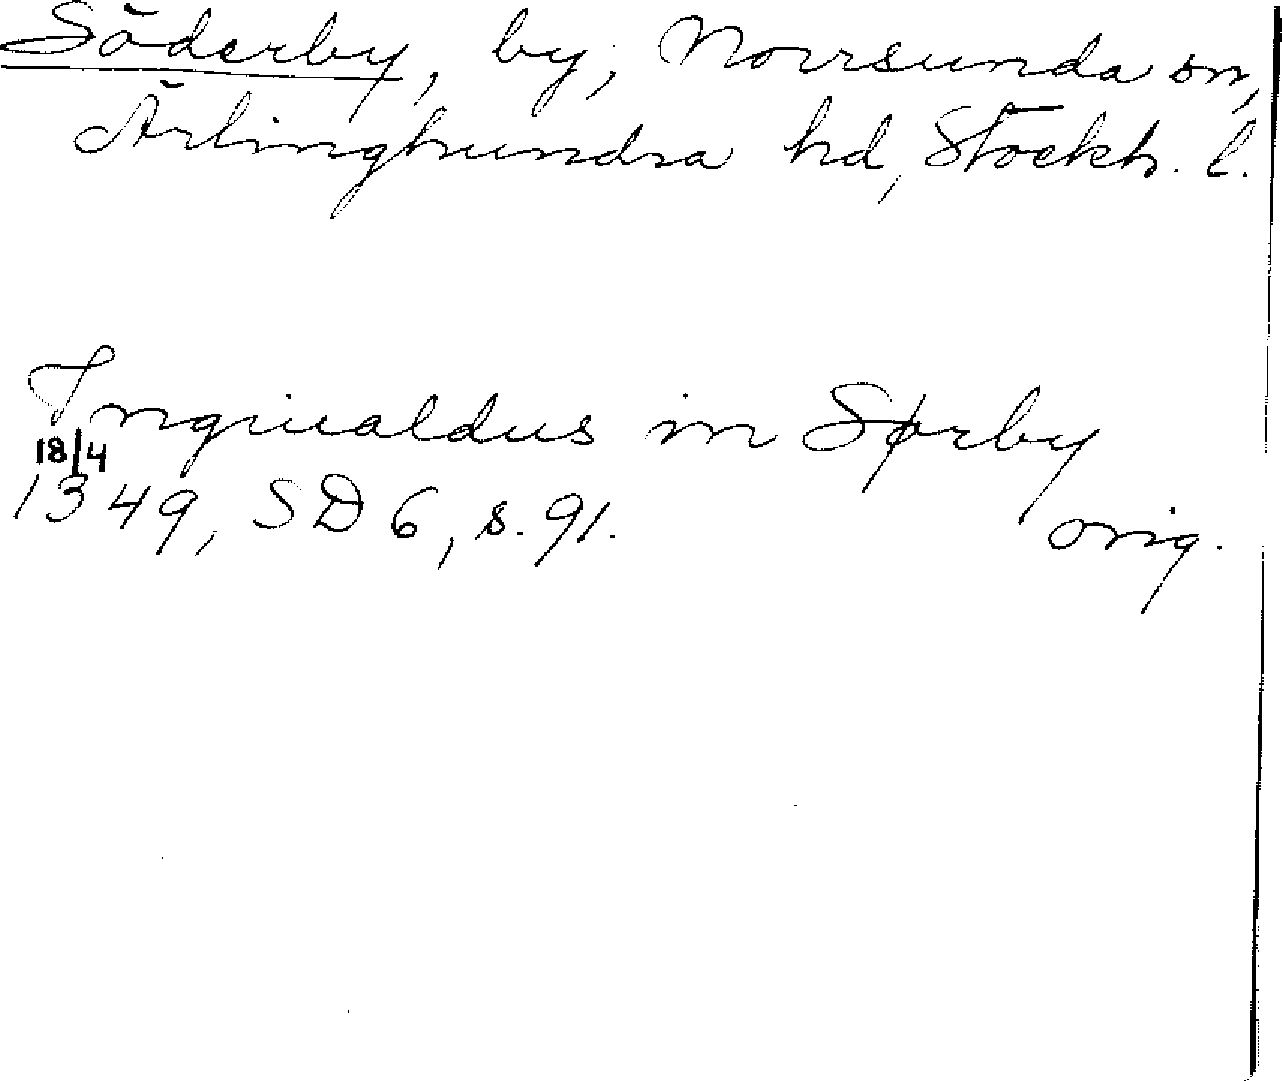 Söderby, by, Norrsunda sn,
Ärlinghundra hd, Stockh. l.
Ingiualdus in Sørby
18/4
1349, SD 6, s. 91.
orig.